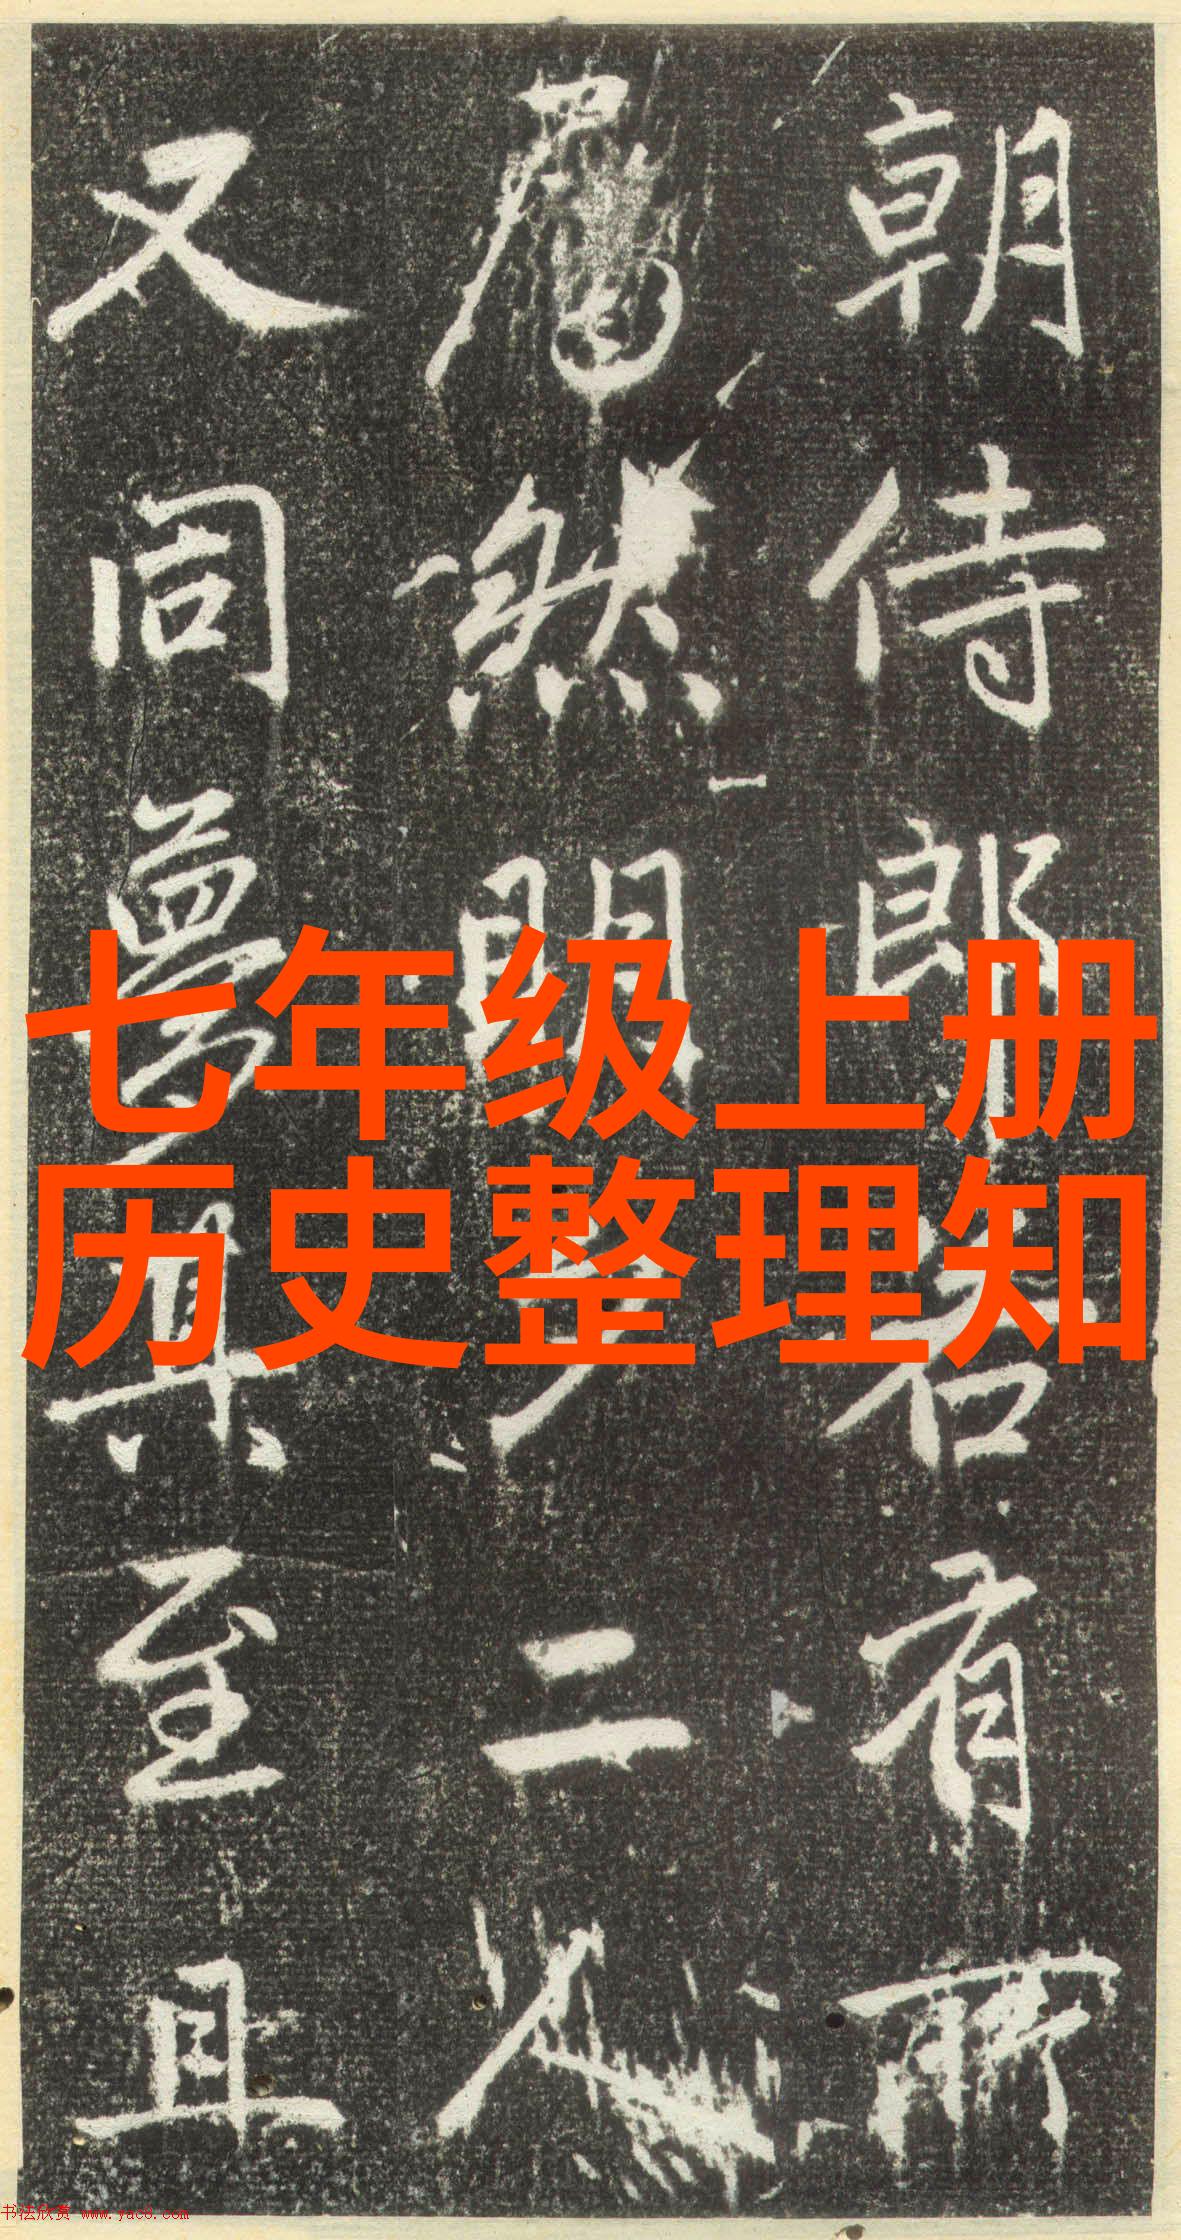 朝侍郎君有所
屬然明
二人
又同
其至且
七年级上册
历史整理知
书法欣赏 www.yac8.com